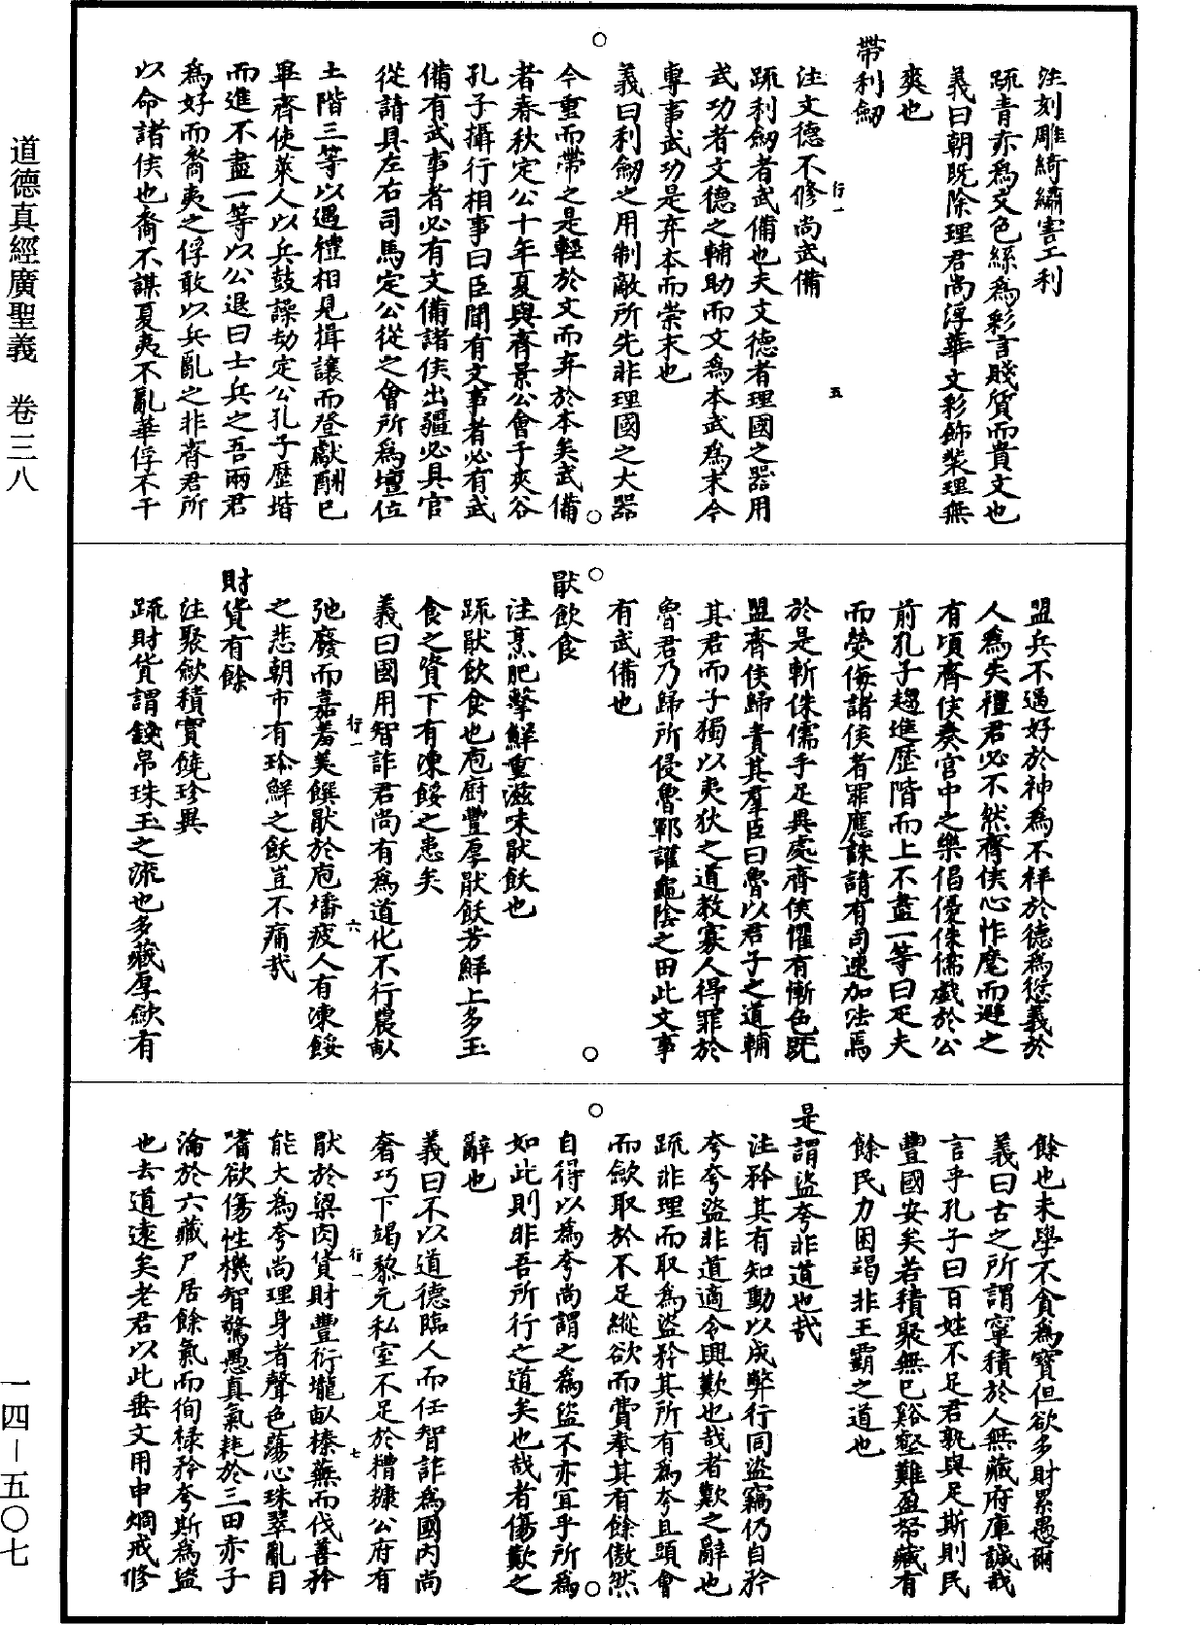 道德真經廣聖義　卷三八
注刻雕綺繡害工利
疏青赤爲文色絲爲彩言賤質而貴文也
義曰朝既除理君尚浮華文彩飾裝理無
爽也
帶利劒
注文德不修尚武備
疏利劒者武備也夫文德者理國之器用
武功者文德之輔助而文爲本武爲末今
專事武功是弃本而崇末也
義曰利劒之用制敵所先非理國之大器
今重而帶之是輕於文而弃於本矣武備
者春秋定公十年夏與齊景公會于夾谷
孔子攝行相事曰臣聞有文事者必有武
備有武事者必有文備諸侯出疆必具官
從請具左右司馬定公從之會所爲壇位
土階三等以遇禮相見揖讓而登獻酬已
畢齊使萊人以兵鼓譟劫定公孔子歷堦
而進不盡一等以公退曰士兵之吾兩君
爲好而裔夷之俘敢以兵亂之非齊君所
以命諸侯也裔不謀夏夷不亂華俘不干
行一
五
盟兵不逼好於神爲不祥於德爲愆義於
人爲失禮君必不然齊侯心怍麾而避之
有頃齊侯奏宮中之樂倡優侏儒戲於公
前孔子趨進歷階而上不盡一等曰疋夫
而熒侮諸侯者罪應誅請有司速加法焉
於是斬侏儒手足異處齊侯懼有慚色旣
盟齊侯歸責其羣臣曰魯以君子之道輔
其君而子獨以夷狄之道教寡人得罪於
魯君乃歸所侵魯鄆讙龜陰之田此文事
有武備也
猒飲食
注烹肥擊鮮重滋味猒飫也
疏猒飲食也庖廚豐厚猒飫芳鮮上多玉
食之資下有凍餒之患矣
義曰國用智詐君尚有爲道化不行農畝
弛廢而嘉羞美饌猒於庖墦疲人有凍餒
之悲朝市有珍鮮之飫豈不痛哉
財貨有餘
注聚歛積實饒珍異
疏財貨謂錢帛珠玉之流也多藏厚歛有
行一
六
餘也未學不貪爲寶但欲多財累愚爾
義曰古之所謂寧積於人無藏府庫誠哉
言乎孔子曰百姓不足君孰與足斯則民
豐國安矣若積聚無已谿壑難盈帑藏有
餘民力困竭非王霸之道也
是謂盜夸非道也哉
注矜其有知動以成弊行同盜竊仍自矜
夸夸盜非道適令興歎也哉者歎之辭也
疏非理而取爲盜矜其所有爲夸且頭會
而歛取於不足縱欲而賞奉其有餘傲然
自得以爲夸尚謂之爲盜不亦宜乎所爲
如此則非吾所行之道矣也哉者傷歎之
辭也
義曰不以道德臨人而任智詐爲國內尚
奢巧下竭黎元私室不足於糟糠公府有
猒於粱肉貨財豐衍壠畝榛蕪而伐善矜
能大爲夸尚理身者聲色蕩心珠翠亂目
嗜欲傷性機智驚愚真氣耗於三田赤子
淪於六藏尸居餘氣而徇祿矜夸斯爲盜
也去道遠矣老君以此垂文用申烱戒修
行一
七
一四－五〇七